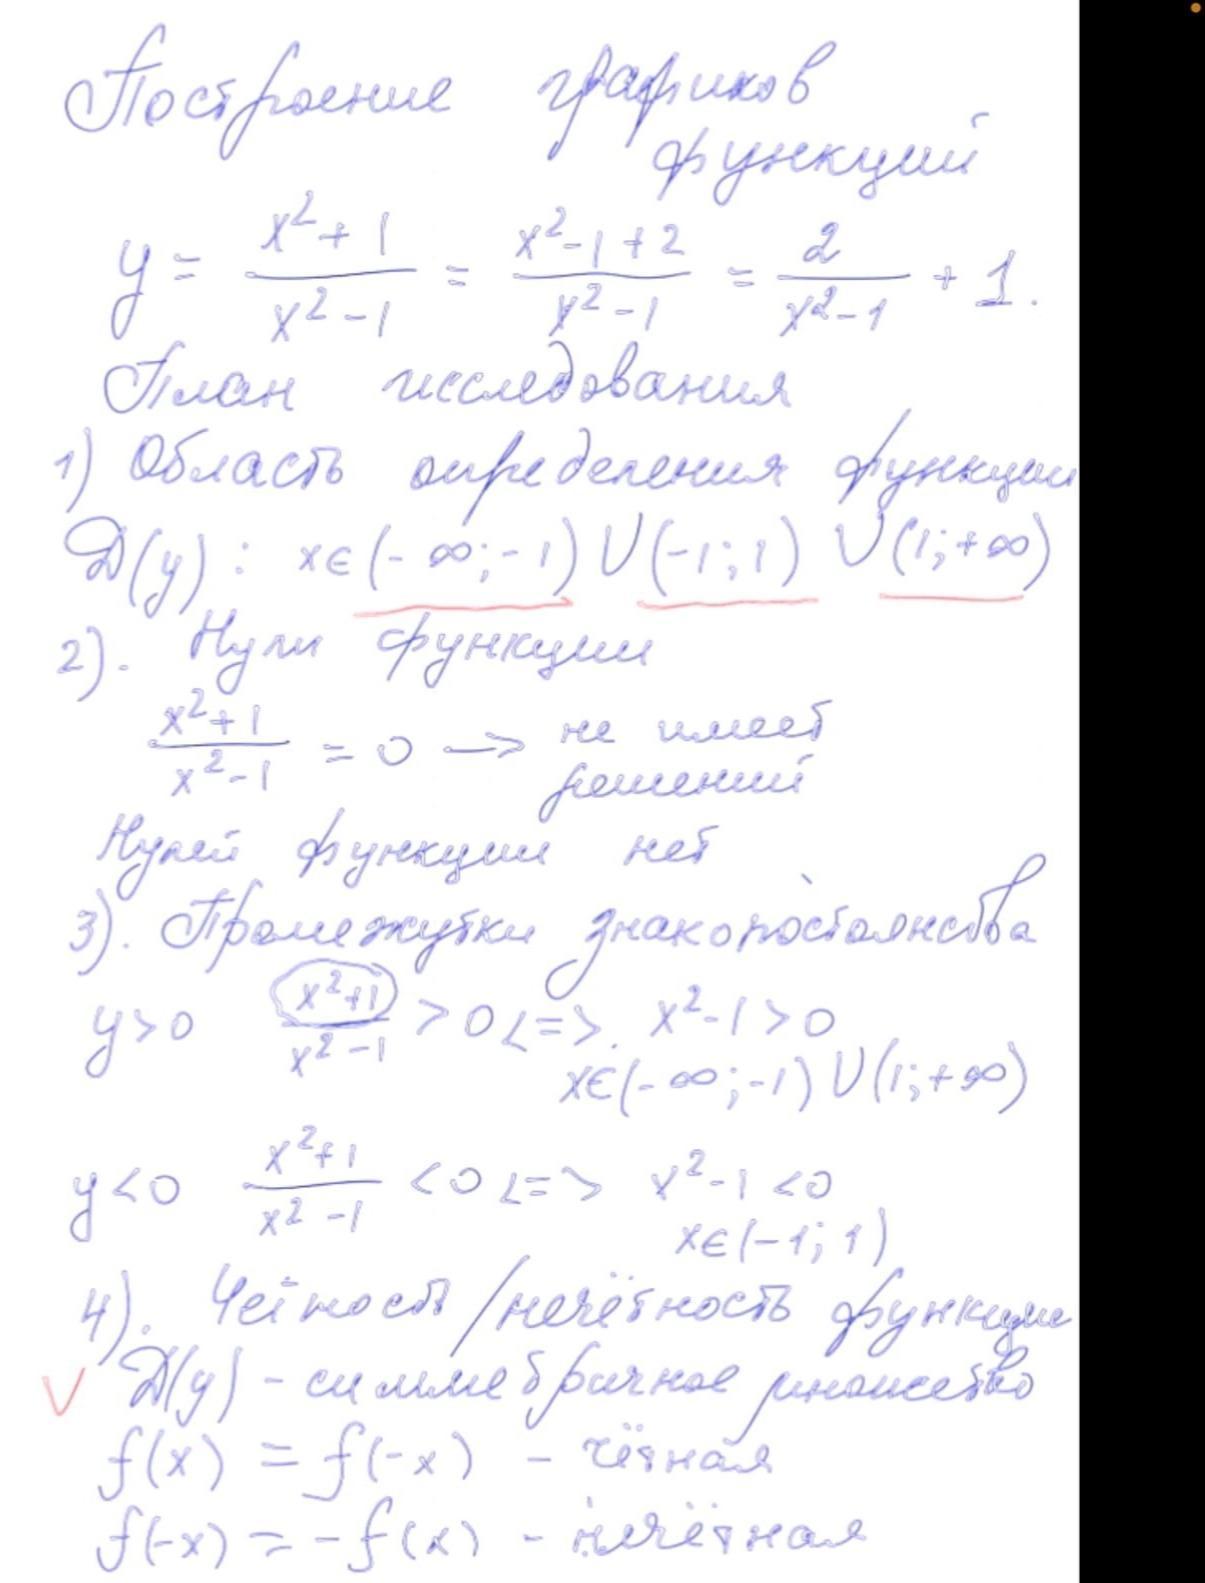 Построение графиков
функций
y = (x²+1)/(x²-1) = (x²-1+2)/(x²-1) = 2/(x²-1) + 1.
План исследования
1) Область определения функции
D(y): x∈(-∞;-1)∪(-1;1)∪(1;+∞)
2). Нули функции
(x²+1)/(x²-1) = 0 —> не имеет
решений
Нулей функции нет
3). Промежутки знакопостоянства
y>0 (x²+1)/(x²-1) >0 <=> x²-1>0
x∈(-∞;-1)∪(1;+∞)
y<0 (x²+1)/(x²-1) <0 <=> x²-1<0
x∈(-1;1)
4). Чётность/нечётность функции
D(y) - симметричное множество
f(x) = f(-x) - чётная
f(-x) = -f(x) - нечётная